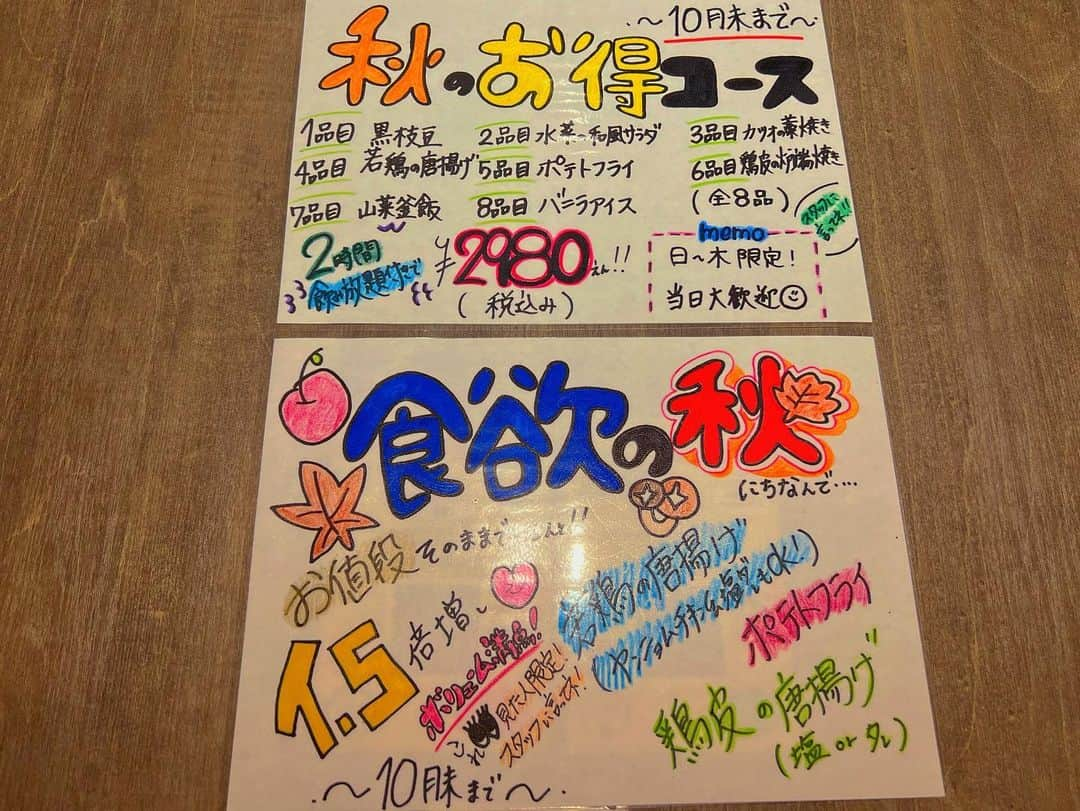 〜10月末まで〜
秋のお得コース
1品目 黒枝豆 2品目 水菜の和風サラダ 3品目 カツオの藁焼き
4品目 若鶏の唐揚げ 5品目 ポテトフライ 6品目 鶏皮の炉端焼き
7品目 山菜釜飯 8品目 バニラアイス (全8品)
スタッフに言ってネ!!
2時間
飲み放題付きで
¥2980えん!!
(税込み)
memo
日〜木限定!
当日大歓迎
食欲の秋
にちなんで‥‥
お値段そのままで
1.5倍増し
ボリューム満点!
これ見た人限定!
スタッフに言ってネ!
若鶏の唐揚げ
ポテトフライ
鶏皮の唐揚げ
(塩orタレ)
〜10月末まで〜